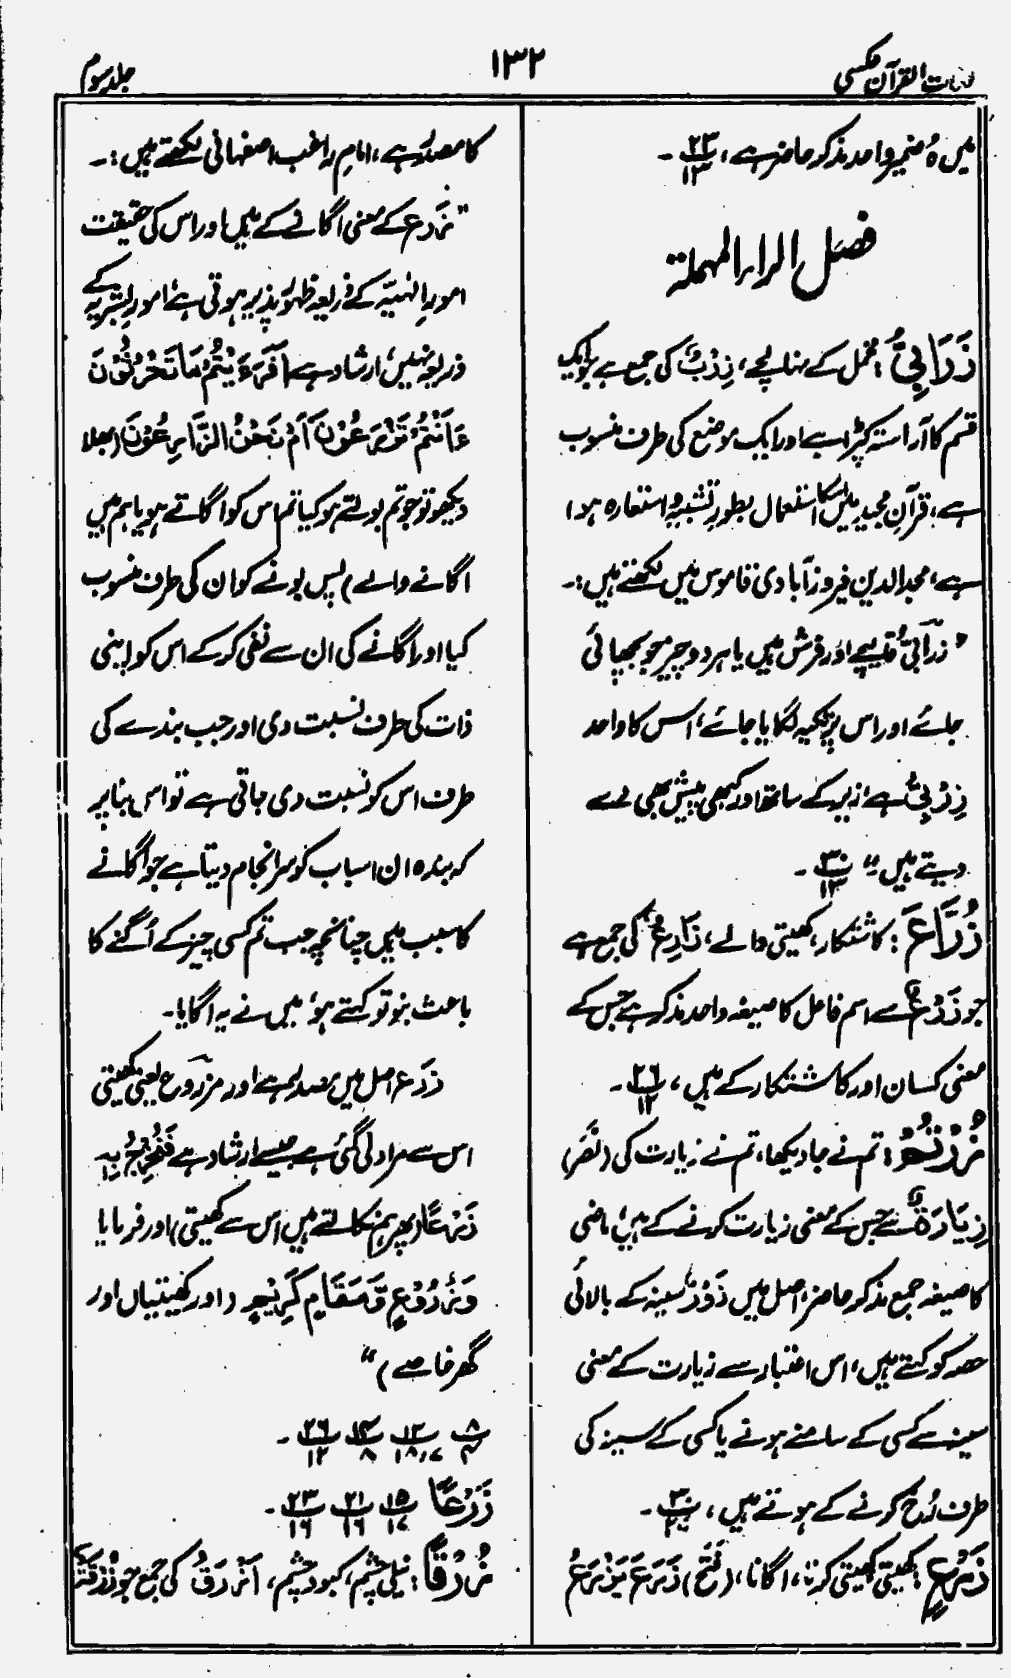 لغات القرآن عکسی
۱۳۲
جلد سوم
میں ہُ ضمیر واحد مذکر حاضر ہے، ۲۳/۱۳ ۔
فصل الراء المہملۃ
زَرَابِیُّ : مخمل کے نہالچے، زِرْبِیٌّ کی جمع ہے جو ایک
قسم کا آراستہ کپڑا ہے اور ایک موضع کی طرف منسوب
ہے، قرآنِ مجید میں اسکا استعمال بطورِ تشبیہ و استعارہ ہوا
ہے، مجد الدین فیروزآبادی قاموس میں لکھتے ہیں:۔
" زرابیّ قلیچے اور فرش ہیں یا ہر وہ چیز جو بچھائی
جائے اور اس پر تکیہ لگایا جائے، اس کا واحد
زِرْبِیٌّ ہے، زیر کے ساتھ اور کبھی پیش بھی لے
دیتے ہیں" ۳۰/۱۳ ۔
زُرَّاعَ : کاشتکار، کھیتی والے، زَارِعٌ کی جمع ہے
جو زَرْعٌ سے اسم فاعل کا صیغہ واحد مذکر ہے جس کے
معنی کسان اور کاشتکار کے ہیں، ۲۶/۱۲ ۔
زُرْتُمُ : تم نے جا دیکھا، تم نے زیارت کی (نَصَرَ)
زِیَارَۃٌ سے جس کے معنی زیارت کرنے کے ہیں، ماضی
کا صیغہ جمع مذکر حاضر، اصل میں زَوْرٌ سینہ کے بالائی
حصہ کو کہتے ہیں، اس اعتبار سے زیارت کے معنی
سینہ سے کسی کے سامنے ہونے یا کسی کے سینہ کی
طرف رُخ کرنے کے ہوتے ہیں، ۳۰ ۔
زَرْعٍ : کھیتی، کھیتی کرنا، اگانا، (فَتَحَ) زَرَعَ یَزْرَعُ
کا مصدر ہے، امام راغب اصفہانی لکھتے ہیں:۔
" زَرع کے معنی اگانے کے ہیں اور اس کی حقیقت
امورِ الٰہیّہ کے ذریعہ ظہور پذیر ہوتی ہے امورِ بشریہ کے
ذریعہ نہیں، ارشاد ہے اَفَرَءَیْتُمْ مَا تَحْرُثُوْنَ
ءَاَنْتُمْ تَزْرَعُوْنَ اَمْ نَحْنُ الزَّارِعُوْنَ (بھلا
دیکھو تو جو تم بوتے ہو کیا تم اس کو اگاتے ہو یا ہم ہیں
اگانے والے) پس بونے کو ان کی طرف منسوب
کیا اور اگانے کی ان سے نفی کر کے اس کو اپنی
ذات کی طرف نسبت دی اور جب بندے کی
طرف اس کو نسبت دی جاتی ہے تو اس بنا پر
کہ بندہ ان اسباب کو سرانجام دیتا ہے جو اگانے
کا سبب ہیں چنانچہ جب تم کسی چیز کے اُگنے کا
باعث بنو تو کہتے ہو، میں نے یہ اگایا۔
زَرع اصل میں مصدر ہے اور مزروع یعنی کھیتی
اس سے مراد لی گئی ہے جیسے ارشاد ہے فَنُخْرِجُ بِہٖ
زَرْعًا (پھر ہم نکالتے ہیں اس سے کھیتی) اور فرمایا
وَزُرُوْعٍ وَّمَقَامٍ کَرِیْمٍ (اور کھیتیاں اور
گھر خاصے) "
۸/۴ ۱۳/۱۸،۷ ۱۴/۸ ۲۶/۱۲ ۔
زَرْعًا ۱۵/۱۷ ۲۱/۱۶ ۲۳/۱۶ ۔
زُرْقًا : نیلی چشم، کبود چشم، اَزْرَقُ کی جمع جو زُرْقَۃٌ